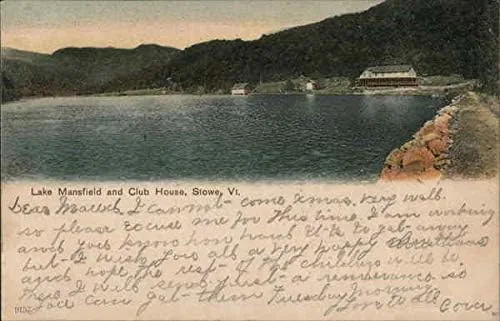 Lake Mansfield and Club House, Stowe, Vt.
Dear I cannot come Xmas very well
so please excuse me for this time. I am working
and you know how hard it is to get away
but I wish you all a very happy Christmas
and hope the rest of the children will be
there I will send just a remembrance so
you can get them Tuesday morning
love to all